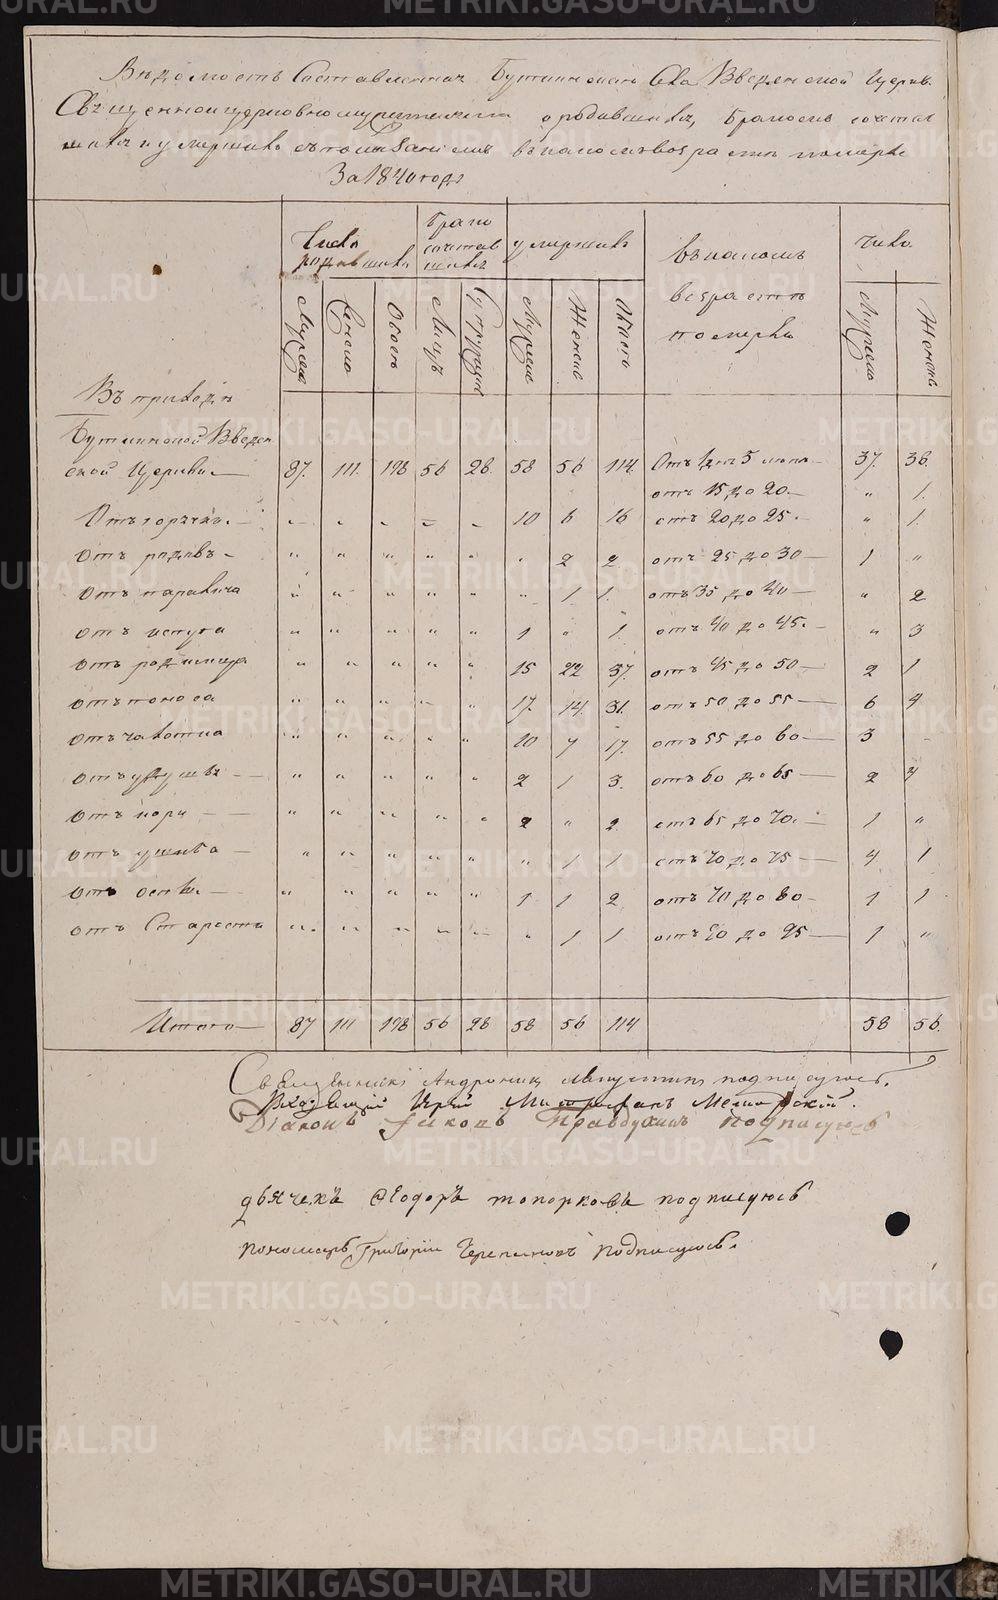 Вѣдомость Составленная Буткинскаго Села Введенской Церкви
Священноцерковнослужителями о родившихся, бракомъ сочетав
шихся и умершихъ съ показаніемъ въ какомъ возрастѣ померли
За 1840 годъ
Число родившихся
Брако сочетав шихся
умершихъ
Въ какомъ возрастѣ померли
Число
Мужска Женска Обоего Лицъ Супружествъ Мужеска Женска Обоего Мужеска Женска
Въ приходѣ
Буткинской Введен
ской Церкви 87. 111. 198 56 28. 58 56 114. Отъ 1 до 5 37. 38.
отъ 15 до 20. „ 1.
Отъ горячки. 10 6 16 отъ 20 до 25. „ 1.
Отъ родовъ „ „ „ „ „ „ 2 2. отъ 25 до 30 1 „
Отъ паралича „ „ „ „ „ „ 1 1. отъ 35 до 40 „ 2
Отъ испуга „ „ „ „ „ 1 „ 1. отъ 40 до 45. „ 3
Отъ родимца „ „ „ „ „ 15 22 37. отъ 45 до 50 2 1
отъ поноса „ „ „ „ „ 17. 14. 31. отъ 50 до 55 6 4
Отъ чахотки „ „ „ „ „ 10 7 17. отъ 55 до 60 3
Отъ удушья „ „ „ „ „ 2 1 3. отъ 60 до 65 2 4
Отъ кори „ „ „ „ „ 2 „ 2. отъ 65 до 70. 1 „
Отъ ушиба „ „ „ „ „ „ 1 1 отъ 70 до 75 4 1
Отъ оспы. „ „ „ „ „ 1 1 2. отъ 70 до 80 1 1
отъ Старости „ „ „ „ „ „ 1 1 отъ 90 до 95 1 „
Итого 87 111 198 56 28 58 56 114 58 56.
Священникъ Андроник подписуюсь.
Діаконъ Іаковъ Правдухинъ подписуюсь
дьячекъ Ѳеодоръ топорковъ подписуюсь
пономарь Григорій Черепановъ подписуюсь.
METRIKI.GASO-URAL.RU